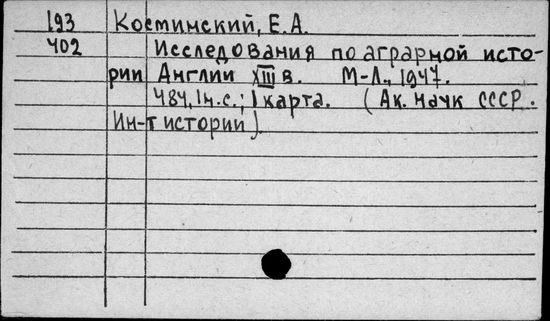 193 Косминский, Е.А.
402 Исследования по аграрной исто-
рии Англии XIII в. М-Л., 1947.
484, 1н.с.; 1 карта. (Ак. наук СССР.
Ин-т истории).